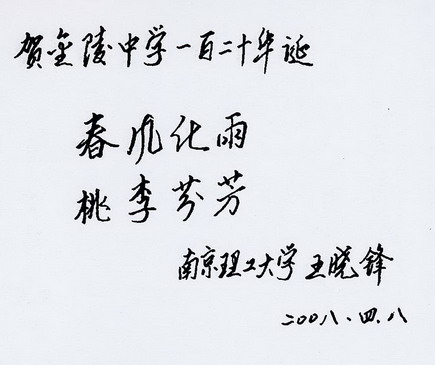 贺金陵中学一百二十华诞
春风化雨
桃李芬芳
南京理工大学 王晓锋
二00八.四.八